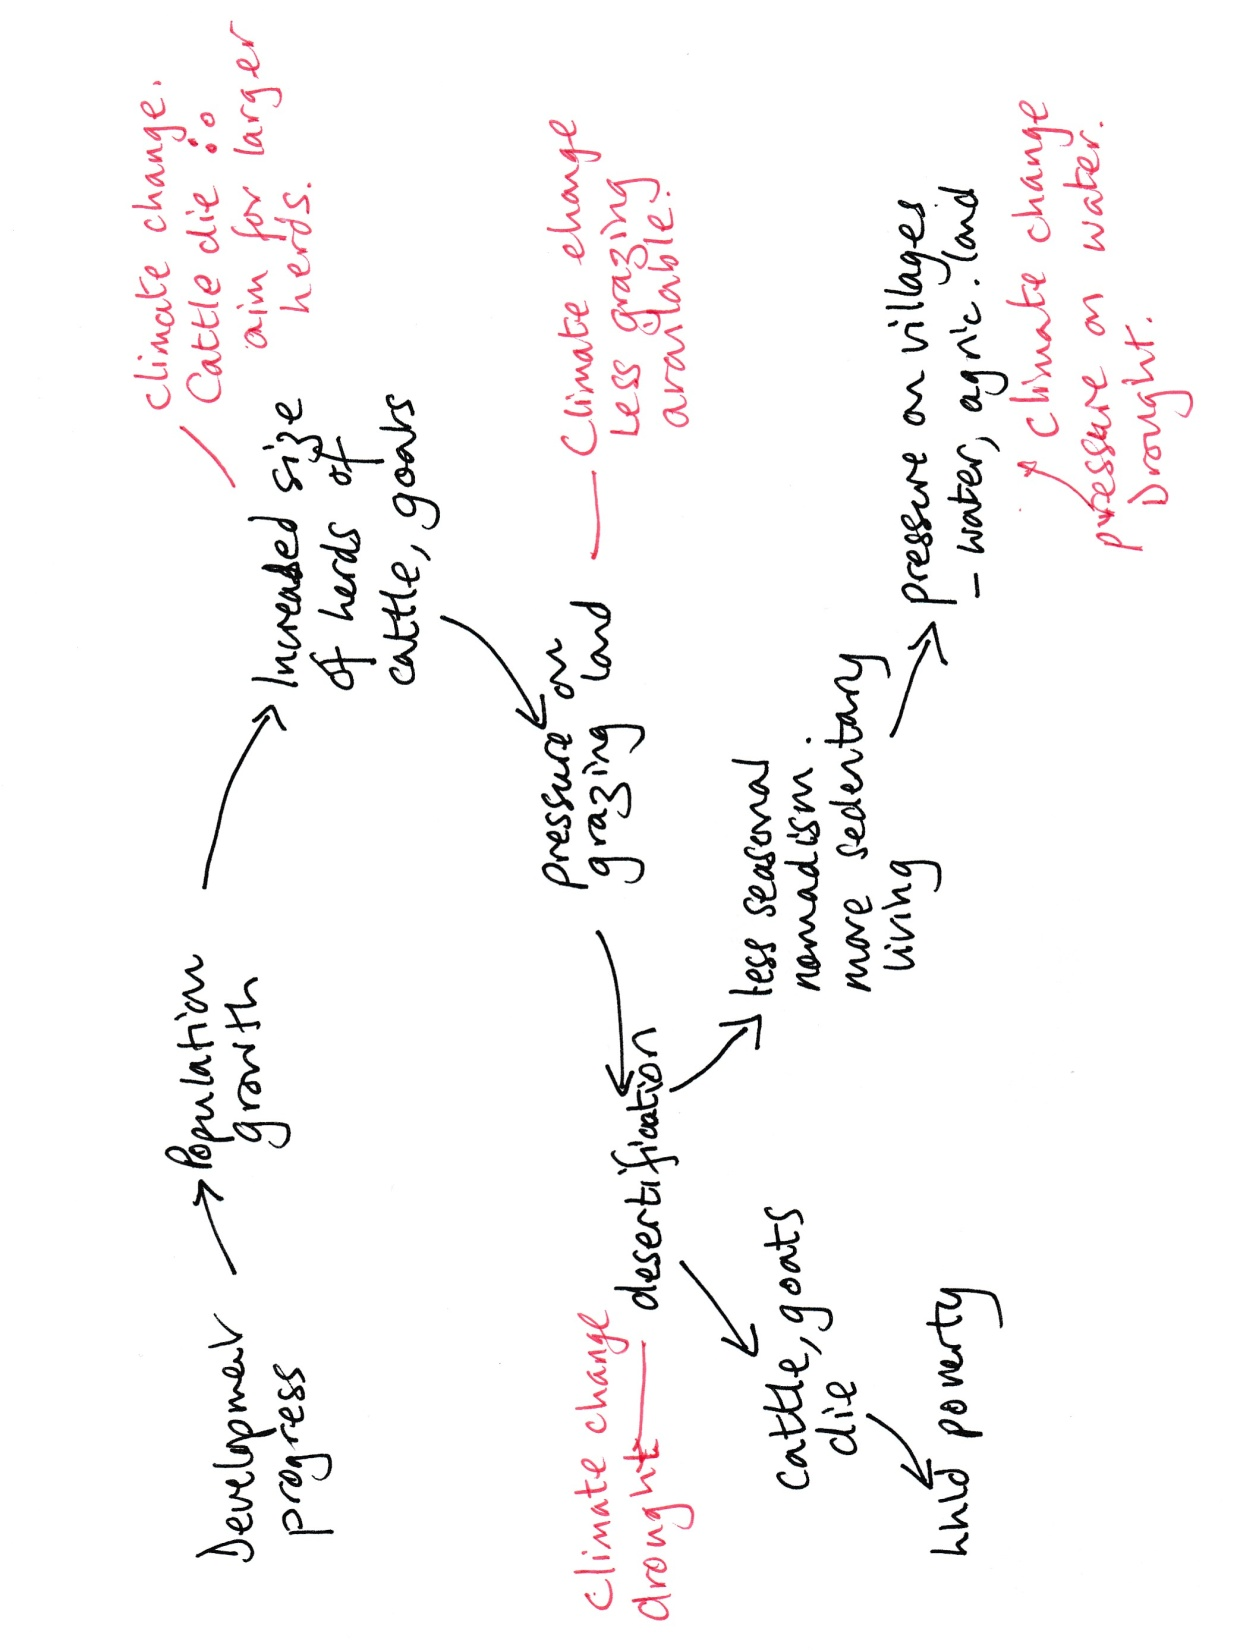 Development
progress
Population
growth
Increased size
of herds of
cattle, goats
Climate change.
Cattle die ∴
aim for larger
herds.
Pressure on
grazing land
Climate change
Less grazing
available.
desertification
Climate change
drought
Cattle, goats
die
hhld poverty
less seasonal
nomadism.
more sedentary
living
pressure on villages
- water, agric. land
Climate change
pressure on water.
Drought.